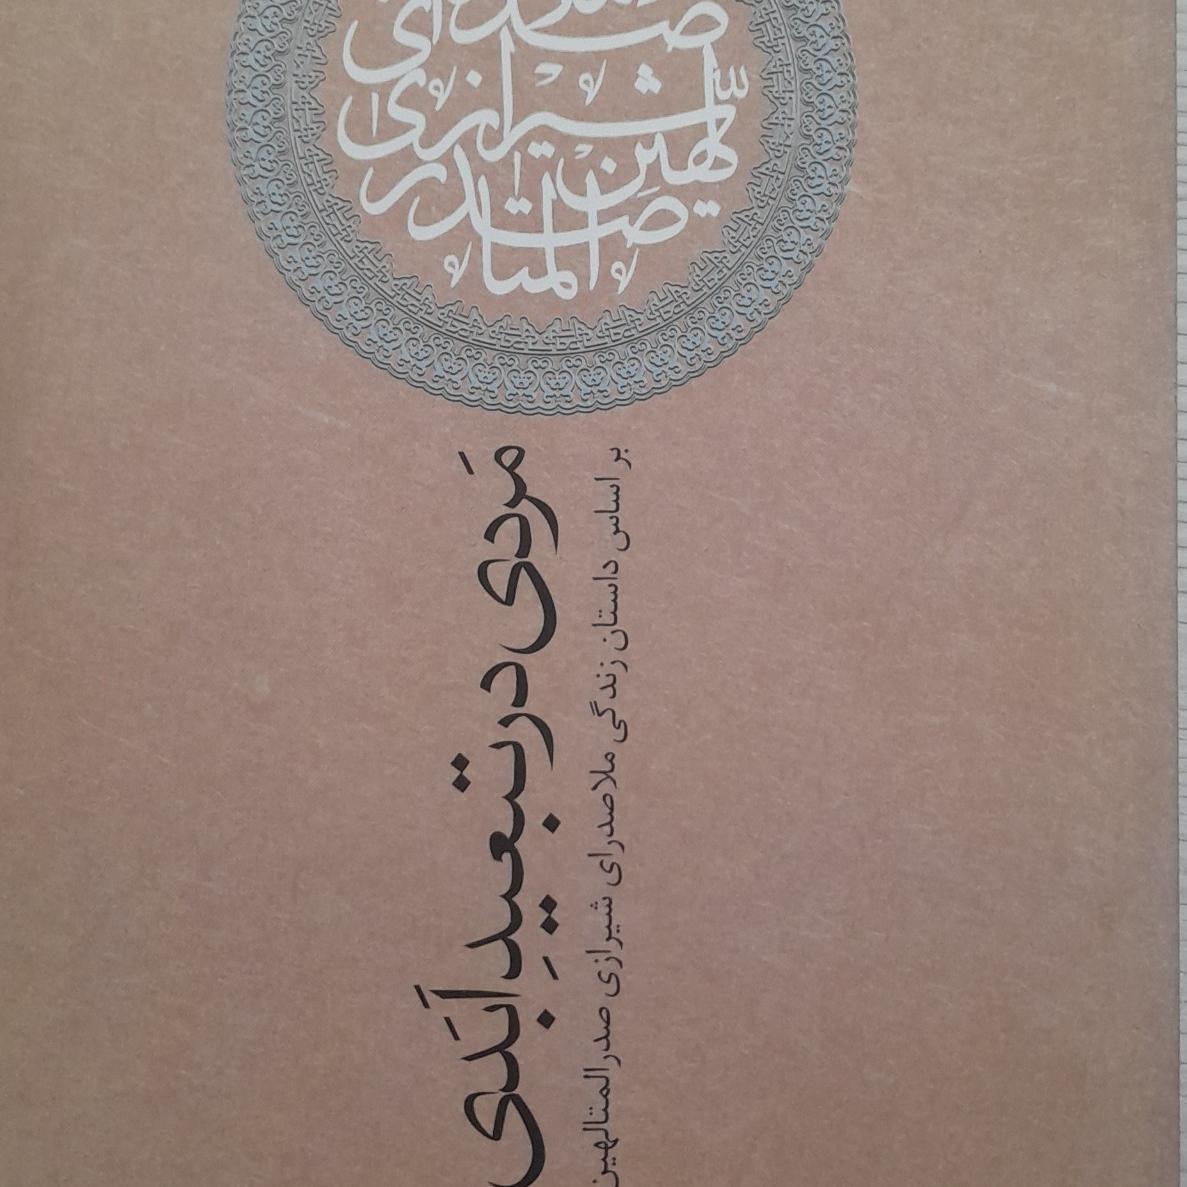 صدرای
شیرازی
صدر المتألهین
مَردی در تبعیدِ اَبَدی
بر اساس داستان زندگی ملاصدرای شیرازی صدرالمتالهین